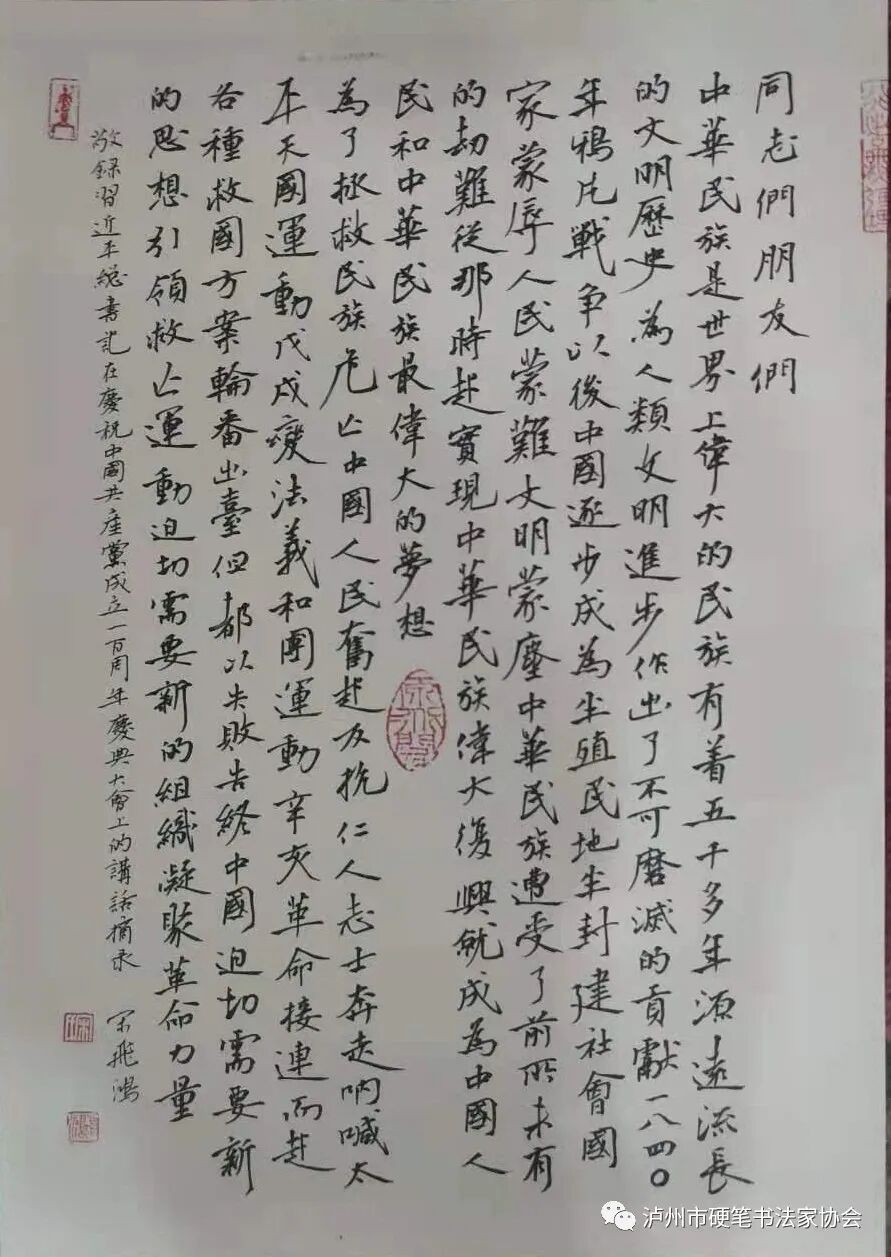 同志們朋友們
中華民族是世界上偉大的民族有着五千多年源遠流長
的文明歷史為人類文明進步作出了不可磨滅的貢獻一八四〇
年鴉片戰争以後中國逐步成為半殖民地半封建社會國
家蒙辱人民蒙難文明蒙塵中華民族遭受了前所未有
的劫難從那時起實現中華民族偉大復興就成為中國人
民和中華民族最偉大的夢想
為了拯救民族危亡中國人民奮起反抗仁人志士奔走吶喊太
平天國運動戊戌變法義和團運動辛亥革命接連而起
各種救國方案輪番出臺但都以失敗告終中國迫切需要新
的思想引領救亡運動迫切需要新的組織凝聚革命力量
敬録習近平總書記在慶祝中國共産黨成立一百周年慶典大會上的講話摘录 宋飛鴻
泸州市硬笔书法家协会